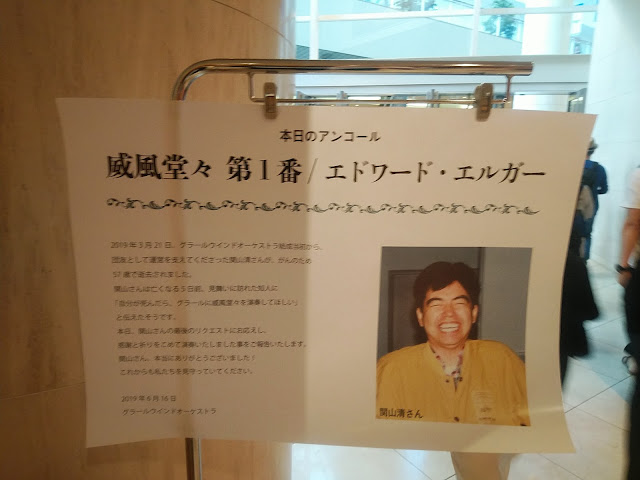 本日のアンコール
威風堂々 第1番/エドワード・エルガー
2019年3月21日、グラールウインドオーケストラ結成当初から、
団友として運営を支えてくださった関山清さんが、がんのため
57歳で逝去されました。
関山さんは亡くなる5日前、見舞いに訪れた知人に
「自分が死んだら、グラールに威風堂々を演奏してほしい」
と伝えたそうです。
本日、関山さんの最後のリクエストにお応えし、
感謝と祈りをこめて演奏いたしました事をご報告いたします。
関山さん、本当にありがとうございました！
これからも私たちを見守っていてください。
2019年6月16日
グラールウインドオーケストラ
関山清さん